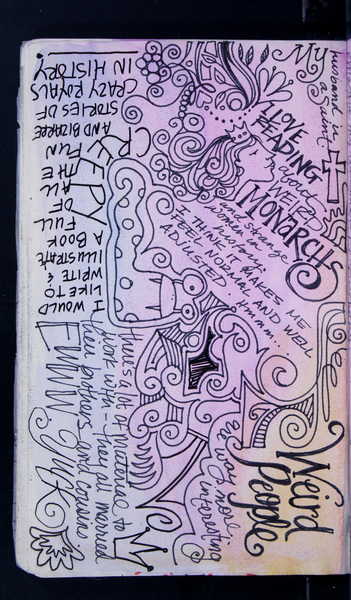 My
husband is
a Saint
I LOVE
READING
about
WEIRD
MONARCHS
and strange
women in
history.
I THINK IT MAKES ME
FEEL NORMAL AND WELL
ADJUSTED. hmmm...
Weird
People
way more
interesting
CREEPY
I WOULD
LIKE TO
WRITE &
ILLUSTRATE
A BOOK
FULL
OF
ALL
THE
FUN
AND BIZARRE
STORIES OF
CRAZY ROYALS
IN HISTORY.
there's a lot of material to
work with - they all married
their brothers and cousins.
EWWW
yuck